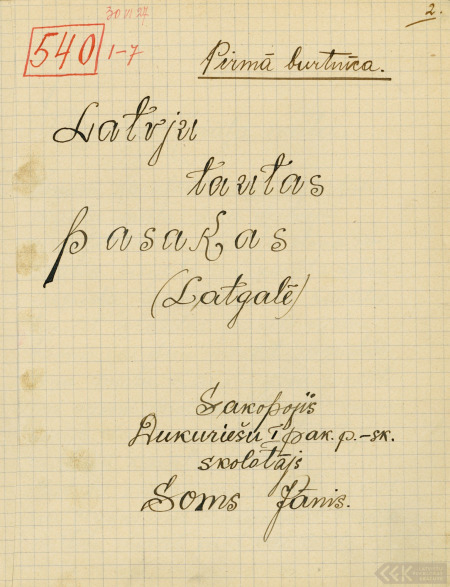 30 VI 27
2.
540
1-7
Pirmā burtnīca.
Latvju
tautas
pasakas
(Latgalē)
Sakopojis
Dukuriešu I pak. p.-sk.
skolotājs
Soms Jānis.